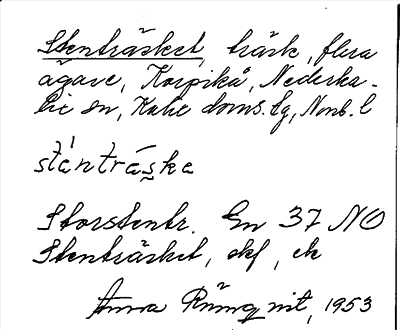 Stenträsket, träsk, flera
ägare, Korpikå, Nederka-
lix sn, Kalix doms. lg, Nmb. l
sténtrás̬ke
Storstentr. En 37 NO
Stenträsket, ekf, ek
Anna Rönnqvist, 1953